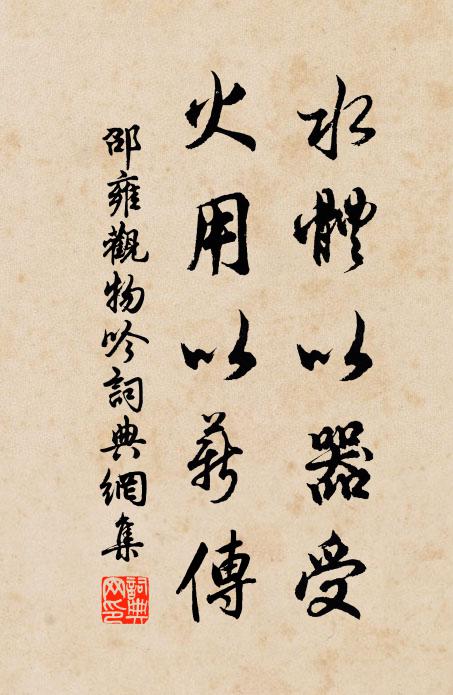 水體以器受
火用以薪傳
邵雍觀物吟詞典網集
詞典網印